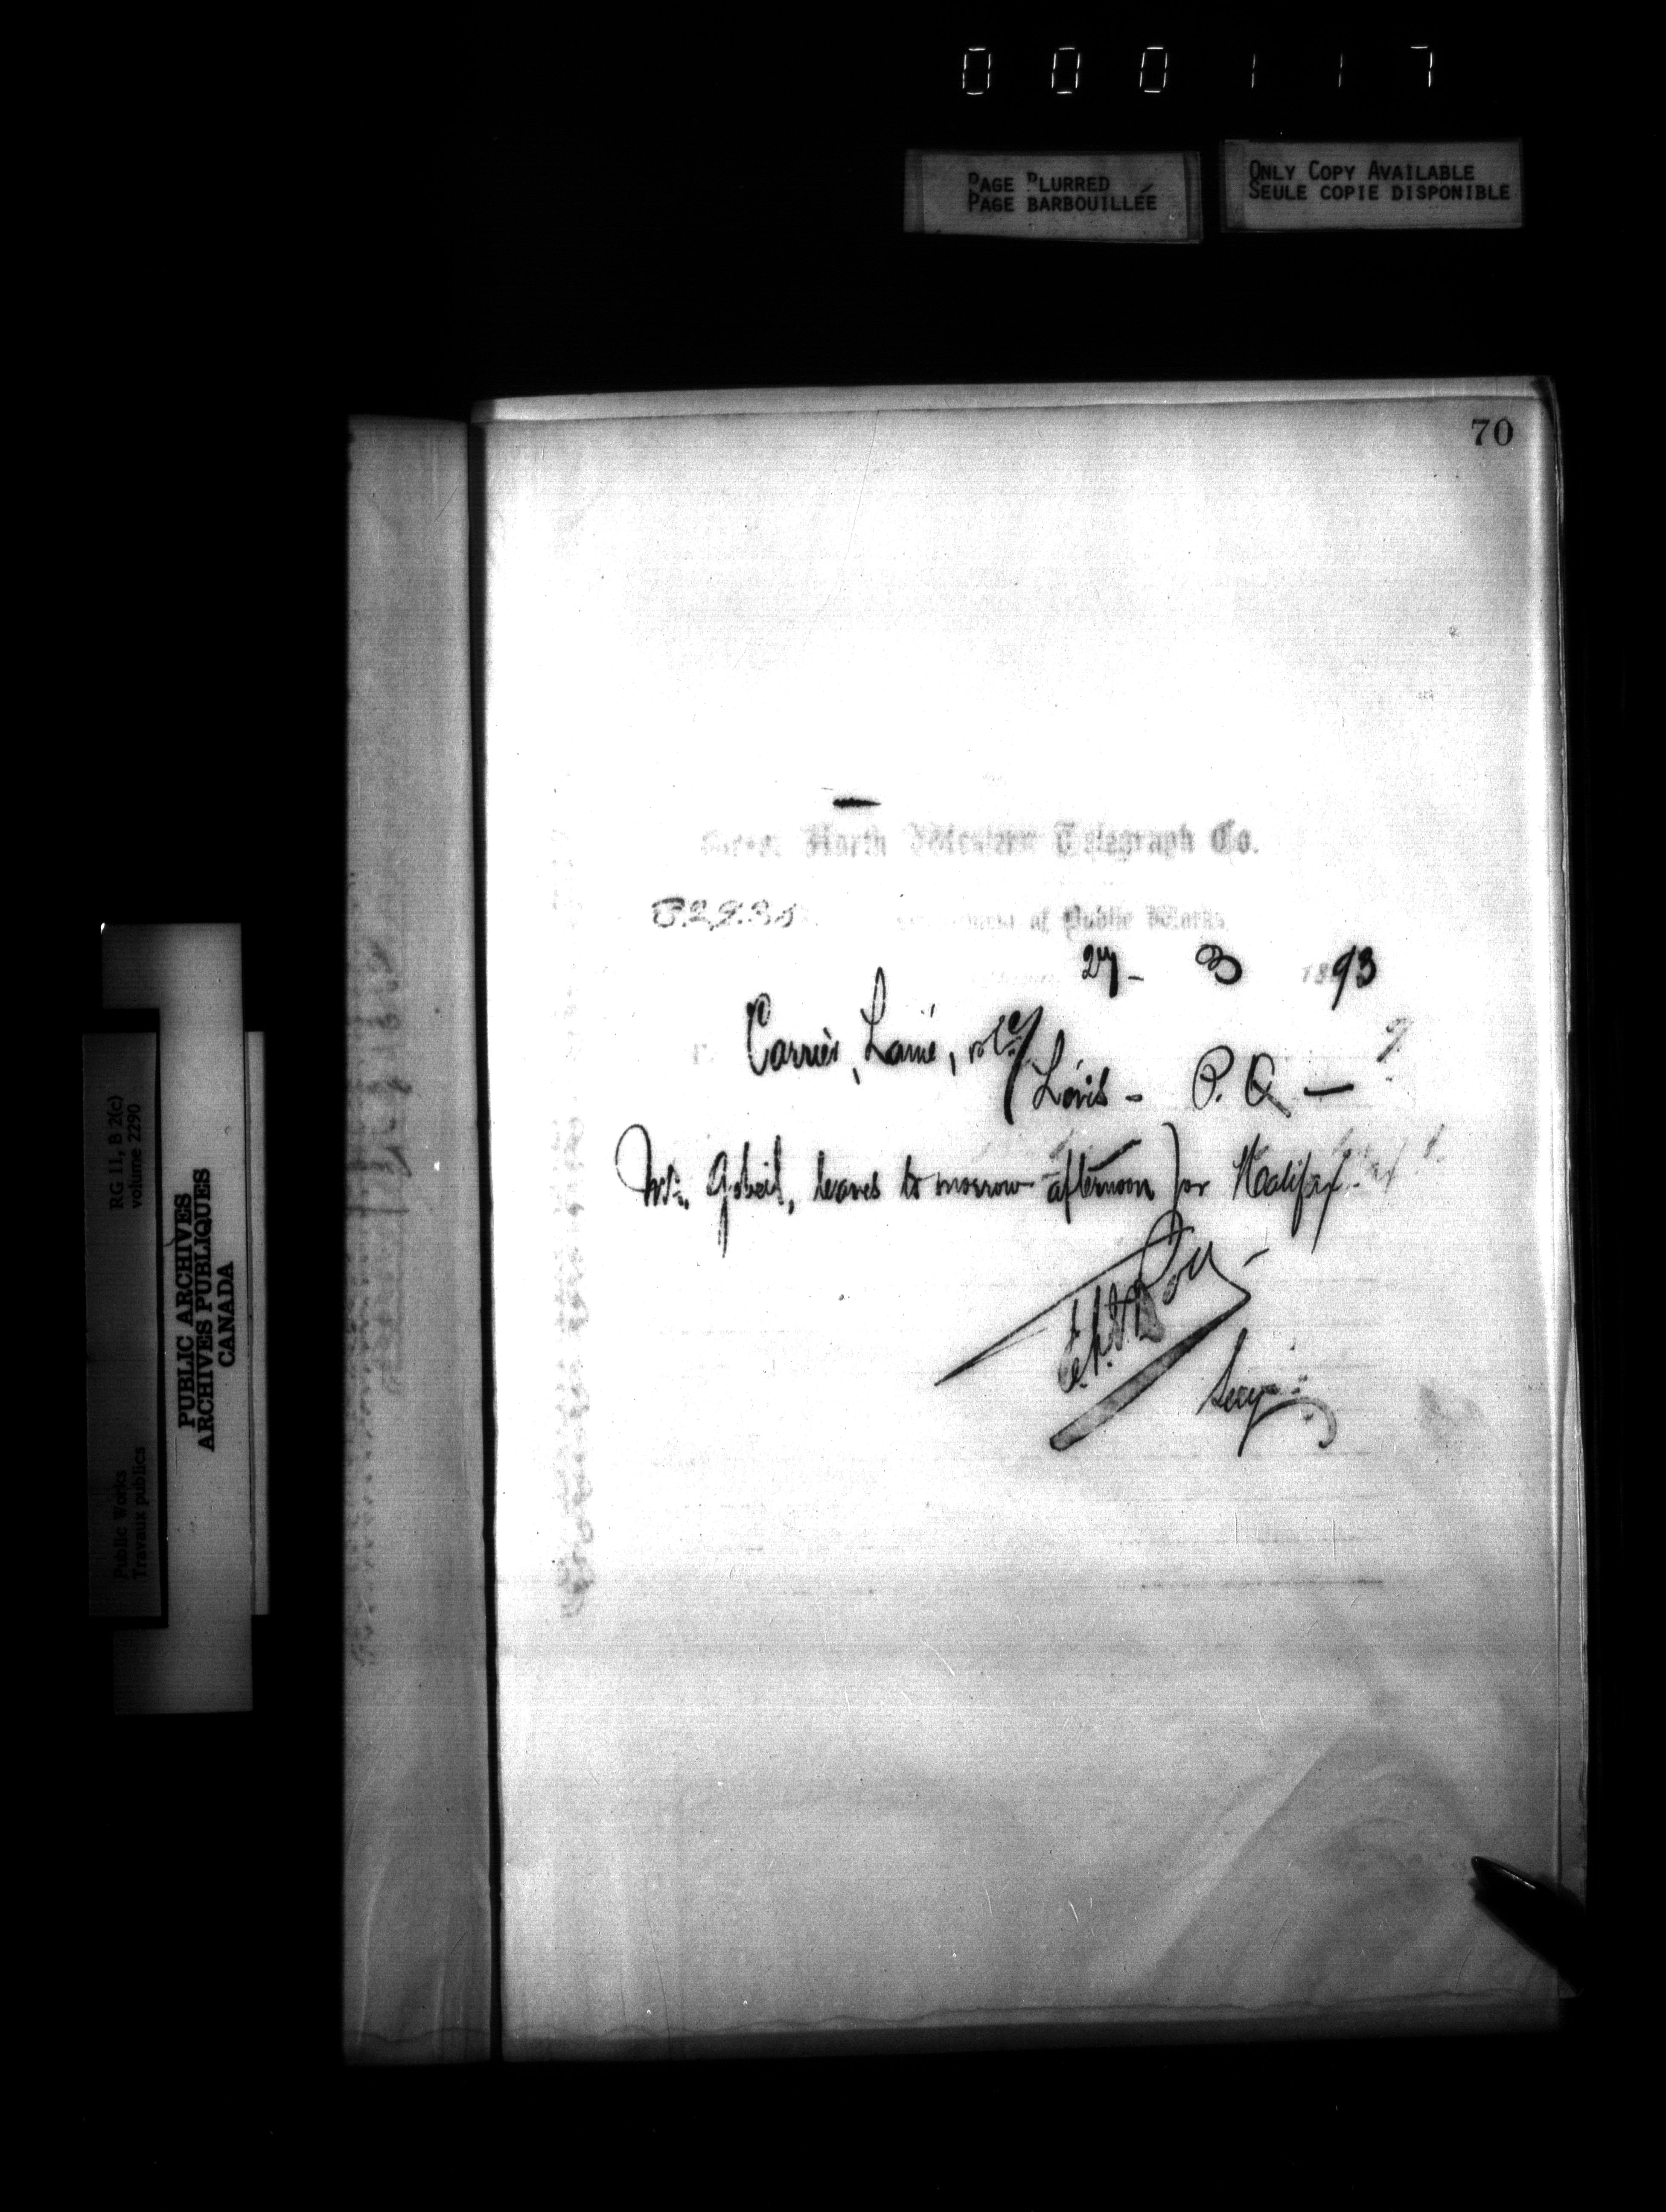 000117
PAGE BLURRED
PAGE BARBOUILLÉE
ONLY COPY AVAILABLE
SEULE COPIE DISPONIBLE
70
Great North Western Telegraph Co.
Department of Public Works
27 - 3 1893
Carrier, Lainé, & Co/
Lévis - P.Q. —
Mr. Gobeil, leaves to morrow afternoon for Halifax.
E.F.E. Roy
Secy.
RG 11, B 2(c)
volume 2290
Public Works
Travaux publics
PUBLIC ARCHIVES
ARCHIVES PUBLIQUES
CANADA